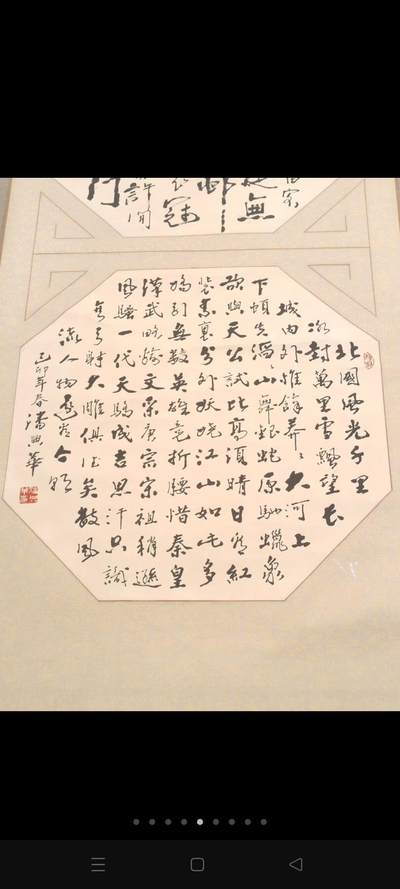 無
冠
北國風光千里
冰封萬里雪飄望長
城内外惟餘莽々大河上
下頓失滔々山舞銀蛇原馳蠟象
欲與天公試比高須晴日看紅
裝素裹分外妖嬈江山如此多
嬌引無數英雄竞折腰惜秦皇
漢武略輸文采唐宗宋祖稍遜
風騷一代天驕成吉思汗只識
彎弓射大雕俱往矣數風
流人物還看今朝
己卯年春潘華